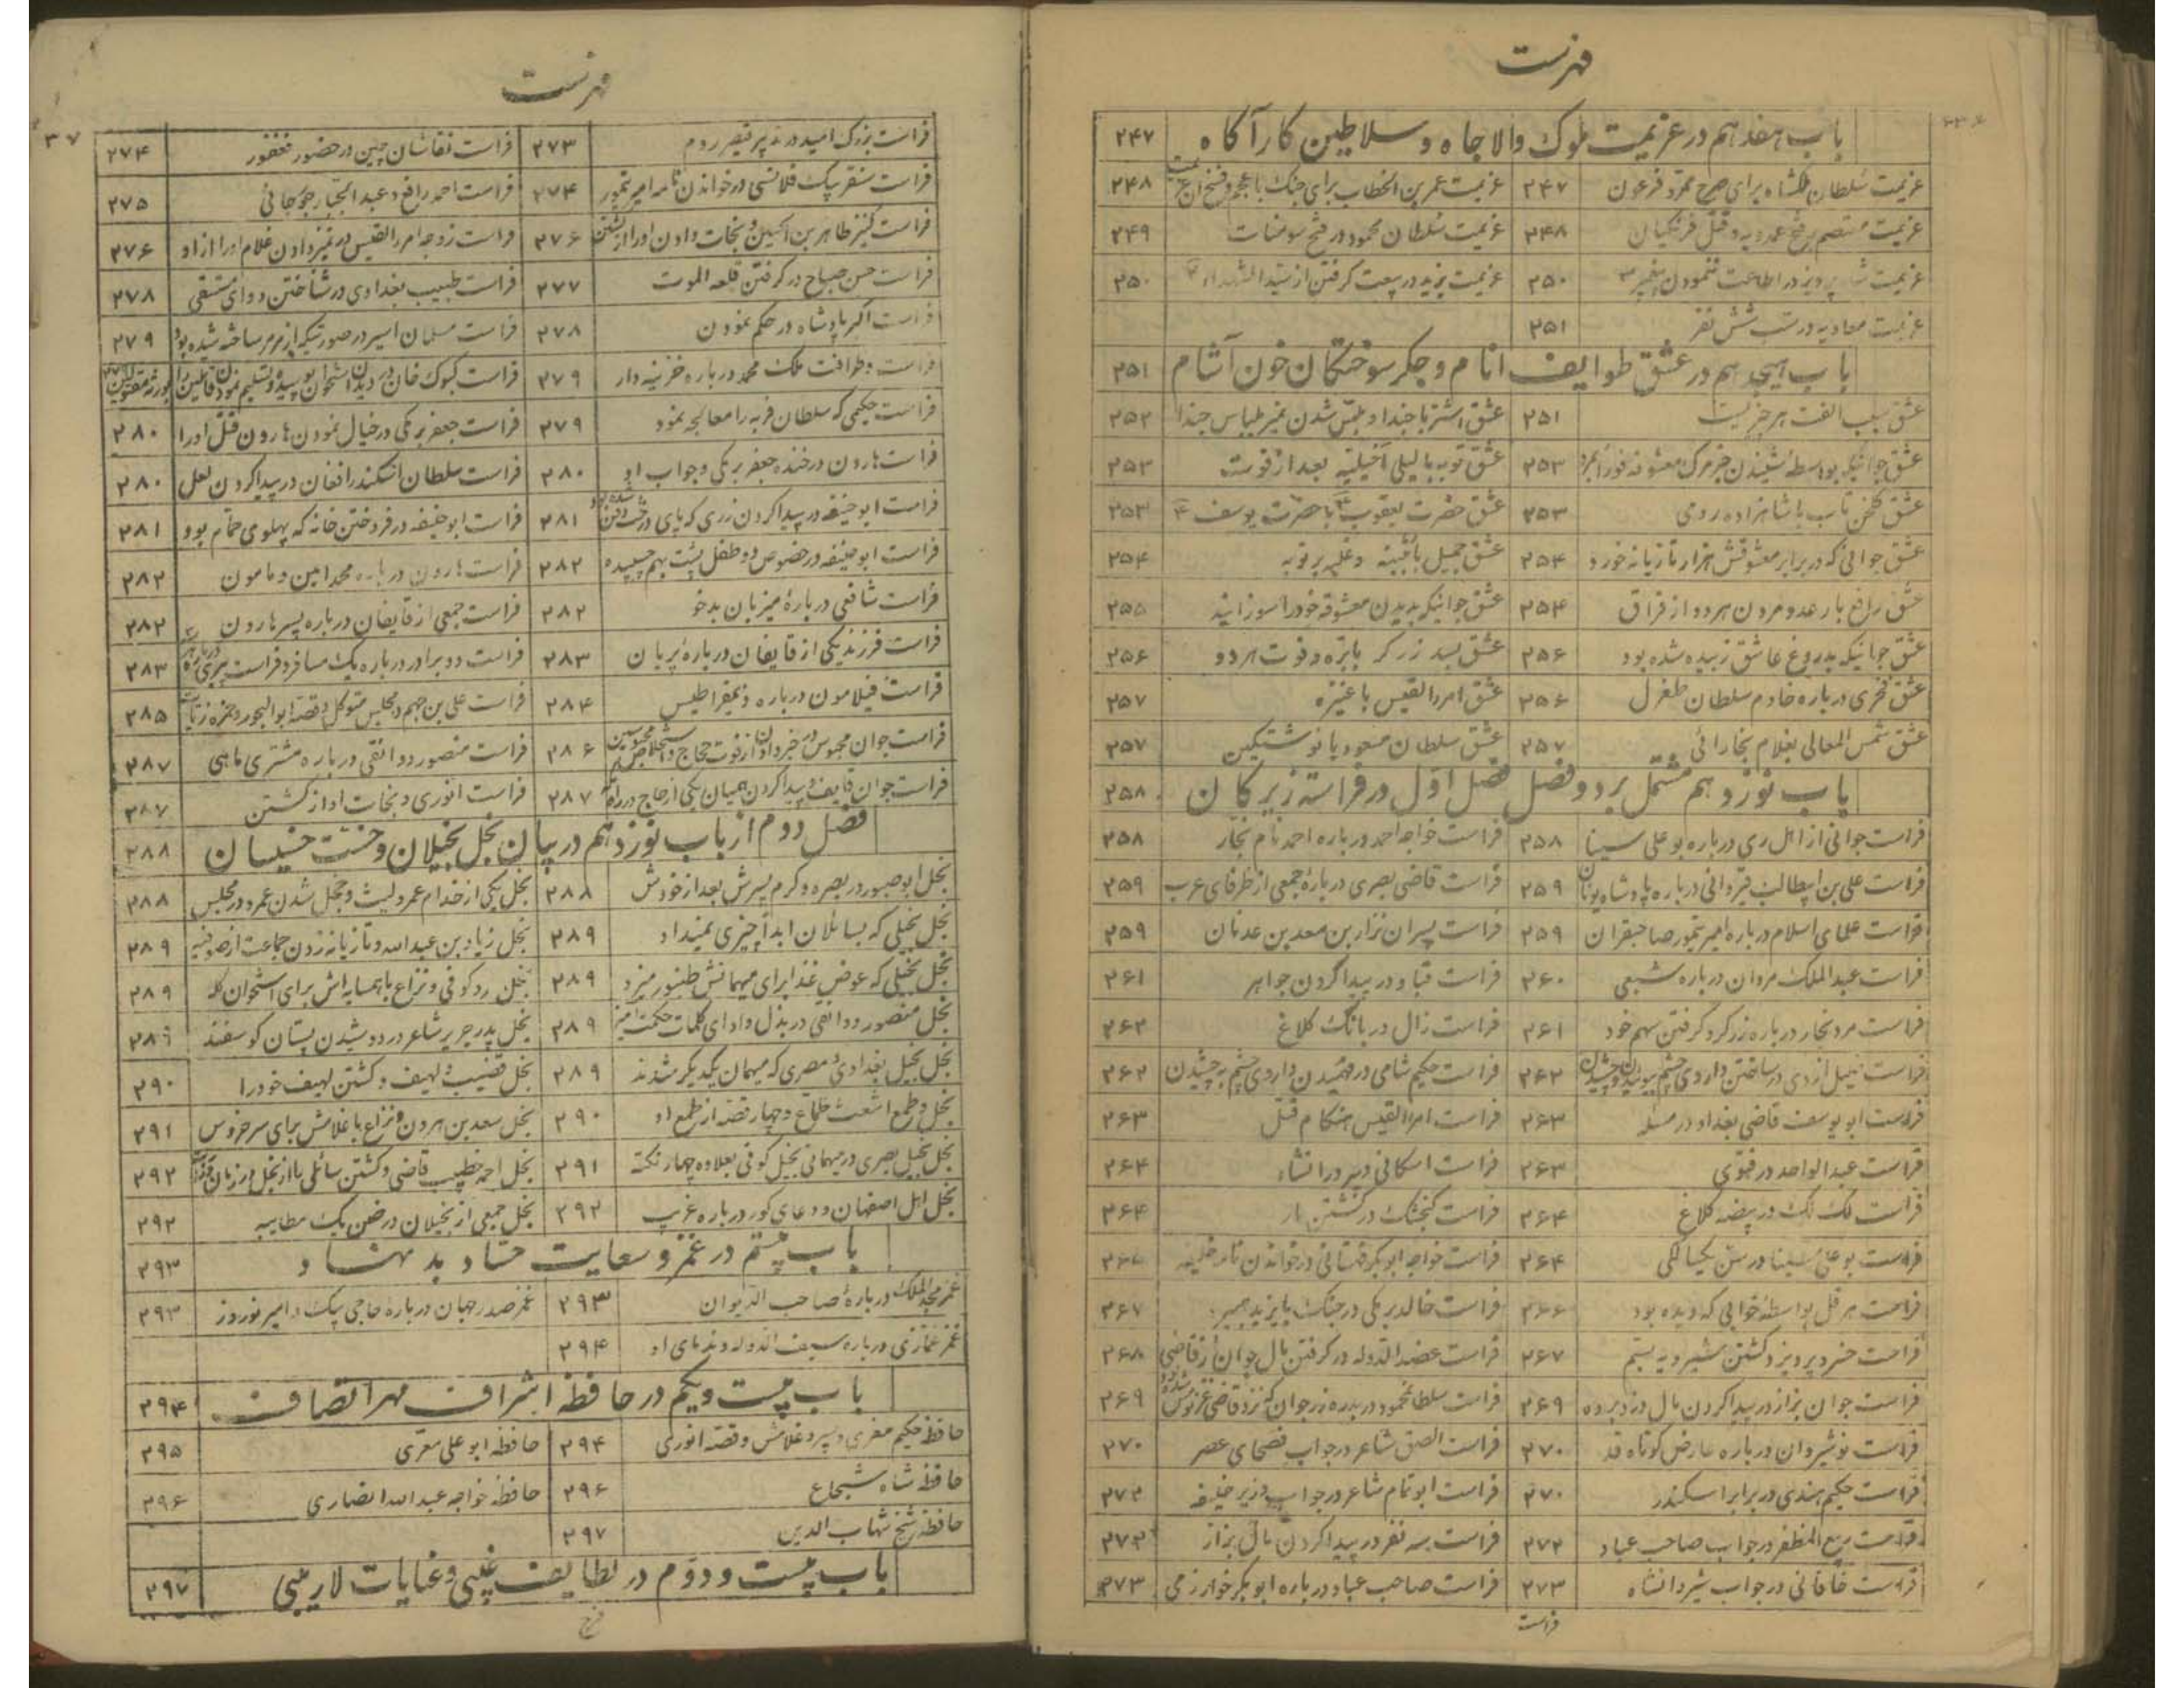 فهرست
باب هفدهم در عزیمت ملوک والا جاه و سلاطین کار آگاه ۲۴۷
عزیمت سلطان ملکشاه برای صرح ممرد فرعون ۲۴۷ عزیمت عمر بن الخطاب برای جنک با عجم و فتح ۲۴۸
عزیمت معتصم بفتح عموریه و قتل فرنکیان ۲۴۸ عزیمت سلطان محمود در فتح سومنات ۲۴۹
عزیمت پرویز در اطاعت ننمودن پیغمبر ۲۵۰ عزیمت یزید در بیعت کرفتن از سید الشهداء ۲۵۰
عزیمت معاویه در شب شش نفر ۲۵۱
باب هیجدهم در عشق طوایف انام و جکر سوختکان خون آشام ۲۵۱
عشق سبب الفت هر چیز است ۲۵۱ عشق اشتر با جیدا و ملبس شدن نمیر بلباس جیدا ۲۵۲
عشق جوانیکه بواسطه شنیدن خبر مرک معشوقه فورا بمرد ۲۵۳ عشق توبه با لیلی اخیلیه بعد از فوت ۲۵۳
عشق کلخن تاب با شاهزاده رومی ۲۵۳ عشق حضرت یعقوب با حضرت یوسف ۲۵۳
عشق جوانی که در برابر معشوقش هزار تازیانه خورد ۲۵۴ عشق جمیل با بثینه و غلبه بر توبه ۲۵۴
عشق رافع با رعد و مردن هر دو از فراق ۲۵۴ عشق جوانیکه بدیدن معشوقه خود را سوزانید ۲۵۵
عشق جوانیکه بدروغ عاشق زبیده شده بود ۲۵۶ عشق پسر زرکر با بره و فوت هر دو ۲۵۶
عشق فخری درباره خادم سلطان طغرل ۲۵۶ عشق امرء القیس با عنیزه ۲۵۷
عشق شمس المعالی بغلام بخارائی ۲۵۷ عشق سلطان مسعود با نوشتکین ۲۵۷
باب نوزدهم مشتمل بر دو فصل فصل اول در فراست زیرکان ۲۵۸
فراست جوانی از اهل ری درباره بو علی سینا ۲۵۸ فراست خواجه احمد درباره احمد نام نجار ۲۵۸
فراست علی بن ابیطالب قیروانی درباره پادشاه یونان ۲۵۹ فراست قاضی بصری درباره جمعی از ظرفای عرب ۲۵۹
فراست علمای اسلام درباره امیر تیمور صاحبقران ۲۵۹ فراست پسران نزار بن معد بن عدنان ۲۵۹
فراست عبد الملک مروان درباره شعبی ۲۶۰ فراست قباد در پیدا کردن جواهر ۲۶۱
فراست مرد نجار درباره زرکر و کرفتن سهم خود ۲۶۱ فراست زال در بانک کلاغ ۲۶۲
فراست نبیل ازدی در ساختن داروی چشم ببوئیدن و چشیدن ۲۶۲ فراست حکیم شامی در فهمیدن داروی چشم به چشیدن ۲۶۲
فراست ابو یوسف قاضی بغداد در مسئله ۲۶۳ فراست امرء القیس هنکام قتل ۲۶۳
فراست عبد الواحد در فتوی ۲۶۳ فراست اسکافی دبیر در انشاء ۲۶۴
فراست لک لک در بیضه کلاغ ۲۶۴ فراست کنجشک در کشتن مار ۲۶۴
فراست بو علی سینا در سن یکسالکی ۲۶۴ فراست خواجه ابو بکر قهستانی در خواندن نامه خلیفه
فراست هرقل بواسطه خوابی که دیده بود ۲۶۶ فراست خالد برمکی در جنک با یزید ۲۶۷
فراست خسرو پرویز و کشتن شیرویه بستم ۲۶۷ فراست عضد الدوله در کرفتن مال جوان از قاضی ۲۶۸
فراست جوان بزاز در پیدا کردن مال دزد برده ۲۶۹ فراست سلطان محمود در بدره زر جوان که نزد قاضی ۲۶۹
فراست نوشیروان درباره عارض کوتاه قد ۲۷۰ فراست شاعر در جواب فصحای عصر ۲۷۰
فراست حکیم هندی در برابر اسکندر ۲۷۰ فراست ابو تمام شاعر در جواب وزیر خلیفه ۲۷۲
فراست ربیع المظفر در جواب صاحب عباد ۲۷۲ فراست سه نفر در پیدا کردن مال بزاز ۲۷۲
فراست خاقانی در جواب شروانشاه ۲۷۳ فراست صاحب عباد درباره ابو بکر خوارزمی ۲۷۳
فراست
فهرست
۳۷
فراست بزرک امید در تدبیر قیصر روم ۲۷۳ فراست نقاشان چین در حضور فغفور ۲۷۴
فراست سنقر بیک فلانسی در خواندن نامه امیر تیمور ۲۷۴ فراست احمد رافع و عبد الجبار جوجانی ۲۷۵
فراست کنیز طاهر بن الحسین و نجات دادن او را از کشتن ۲۷۶ فراست زوجه امرء القیس در تمیز دادن غلام او را از او ۲۷۶
فراست حسن صباح در کرفتن قلعه الموت ۲۷۷ فراست طبیب بغدادی در شناختن دوای مستسقی ۲۷۸
فراست اکبر پادشاه در حکم نمودن ۲۷۸ فراست مسلمان اسیر در صورتیکه از مرمر ساخته شده بود ۲۷۹
فراست و ظرافت ملک محمد درباره خزینه دار ۲۷۹ فراست کبوک خان در دیدن استخوان پوسیده و تسلیم نمودن قاتلین را بورثه مقتولین
فراست حکیمی که سلطان فربه را معالجه نمود ۲۷۹ فراست جعفر برمکی در خیال نمودن هارون قتل او را ۲۸۰
فراست هارون در خنده جعفر برمکی و جواب او ۲۸۰ فراست سلطان اسکندر افغان در پیدا کردن لعل ۲۸۰
فراست ابو حنیفه در پیدا کردن زری که پای درخت دفن شده بود ۲۸۱ فراست ابو حنیفه در فروختن خانه که پهلوی حمام بود ۲۸۱
فراست ابو حنیفه در خصوص دو طفل پشت بهم چسبیده ۲۸۲ فراست هارون درباره محمد امین و مامون ۲۸۲
فراست شافعی درباره میزبان بدخو ۲۸۲ فراست جمعی از قایفان درباره پسر هارون ۲۸۲
فراست فرزند یکی از قایفان درباره پریان ۲۸۳ فراست دو برادر درباره یک مسافر و فراست پیری ۲۸۳
فراست فیلامون درباره ذیمقراطیس ۲۸۴ فراست علی بن جهم در مجلس متوکل و قصه ابو البحور و حمزه زیات ۲۸۵
فراست جوان محبوس در خبر دادن از فوت حجاج و استخلاص محبوسین ۲۸۶ فراست منصور دوانقی درباره مشتری ماهی ۲۸۷
فراست جوان قایف در پیدا کردن همیان یکی از حاج در راه ۲۸۷ فراست انوری و نجات او از کشتن ۲۸۷
فصل دوم از باب نوزدهم در بیان بخل بخیلان و خست خسیسان ۲۸۸
بخل ابو صبور در بصره و کرم پسرش بعد از خودش ۲۸۸ بخل یکی از خدام عمرو لیث و خجل شدن عمرو در مجلس ۲۸۸
بخل بخیلی که بسائلان ابدا چیزی نمیداد ۲۸۹ بخل زیاد بن عبد الله و تازیانه زدن جماعت از صوفیه ۲۸۹
بخل بخیلی که عوض غذا برای میهمانش طنبور میزد ۲۸۹ بخل رد کوفی و نزاع با همسایه اش برای استخوان کله ۲۸۹
بخل منصور دوانقی در بذل و ادای کلمات حکمت آمیز ۲۸۹ بخل پدر جریر شاعر در دوشیدن پستان کوسفند ۲۸۹
بخل بخیل بغدادی و مصری که میهمان یکدیکر شدند ۲۸۹ بخل قضیب و لهیف و کشتن لهیف خود را ۲۹۰
بخل و طمع اشعث طماع و چهار قصه از طمع او ۲۹۰ بخل سعد بن هرون و نزاع با غلامش برای سر خروس ۲۹۱
بخل بخیل بصری در میهمانی بخیل کوفی بعلاوه چهار نکته ۲۹۱ بخل احمد خطیب قاضی و کشتن سائلی را از بخل در زمان ۲۹۲
بخل اهل اصفهان و دعای کور درباره غریب ۲۹۲ بخل جمعی از بخیلان در ضمن یک مطایبه ۲۹۲
باب بیستم در غمز و سعایت حساد بد نهاد ۲۹۳
غمز مجد الملک درباره صاحب الدیوان ۲۹۳ غمز صدر جهان درباره حاجی بیک و امیر نوروز ۲۹۳
غمز غمازی درباره سیف الدوله و ندمای او ۲۹۴
باب بیست و یکم در حافظه اشراف مهر اتصاف ۲۹۴
حافظه حکیم مغربی و پسر و غلامش و قصه انوری ۲۹۴ حافظه ابو علی معری ۲۹۵
حافظه شاه شجاع ۲۹۶ حافظه خواجه عبد الله انصاری ۲۹۶
حافظه شیخ شهاب الدین ۲۹۷
باب بیست و دوم در لطایف غیبی و عنایات لاریبی ۲۹۷